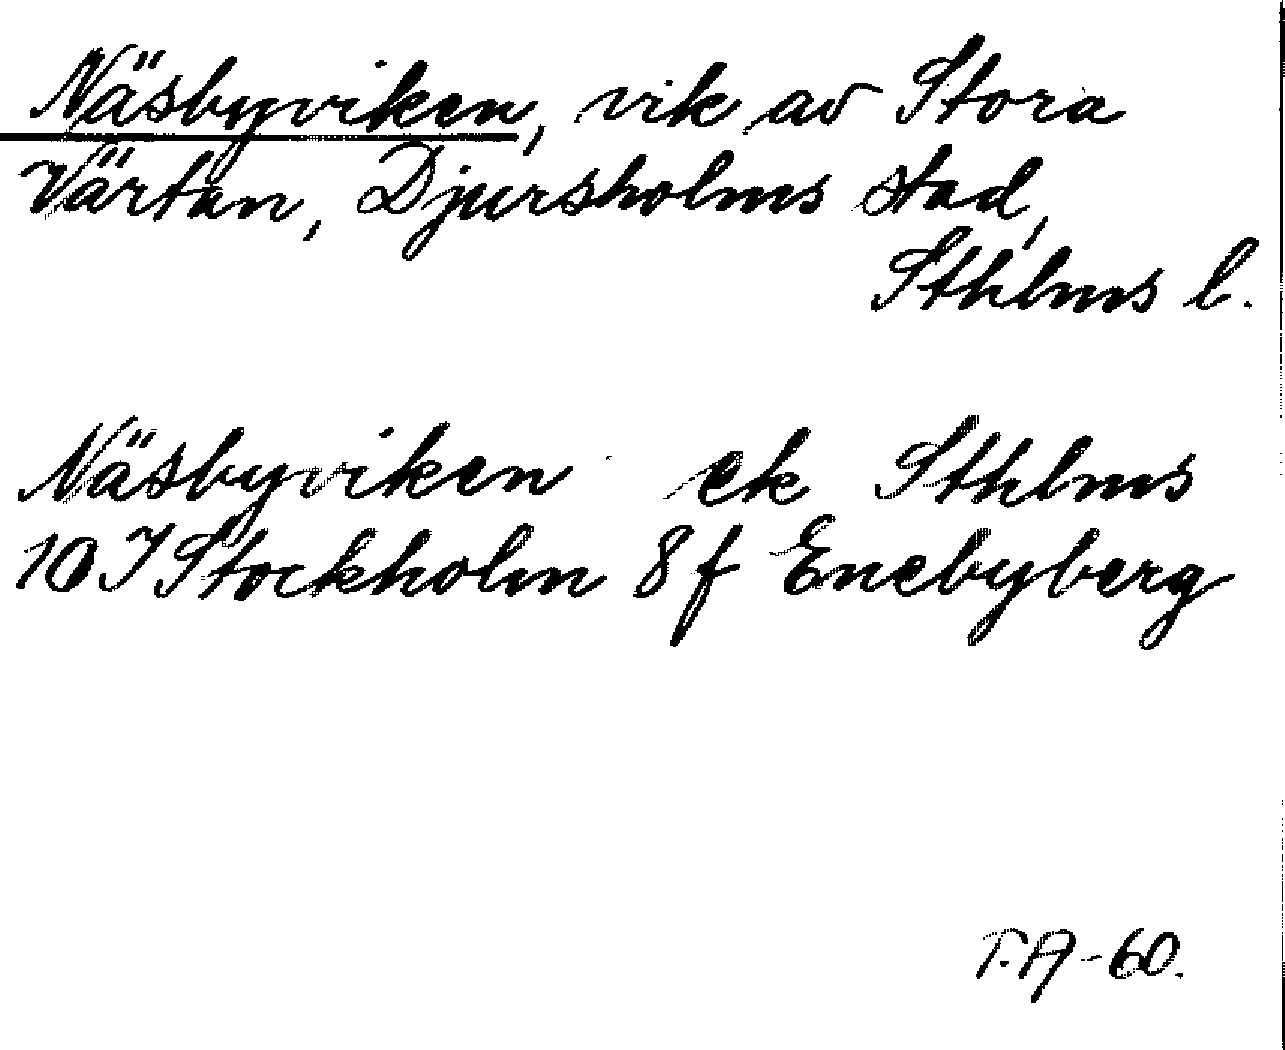 Näsbyviken, vik av Stora
Värtan, Djursholms stad,
Sthlms l.
Näsbyviken ek Sthlms
10 I Stockholm 8 f Enebyberg
T.A-60.